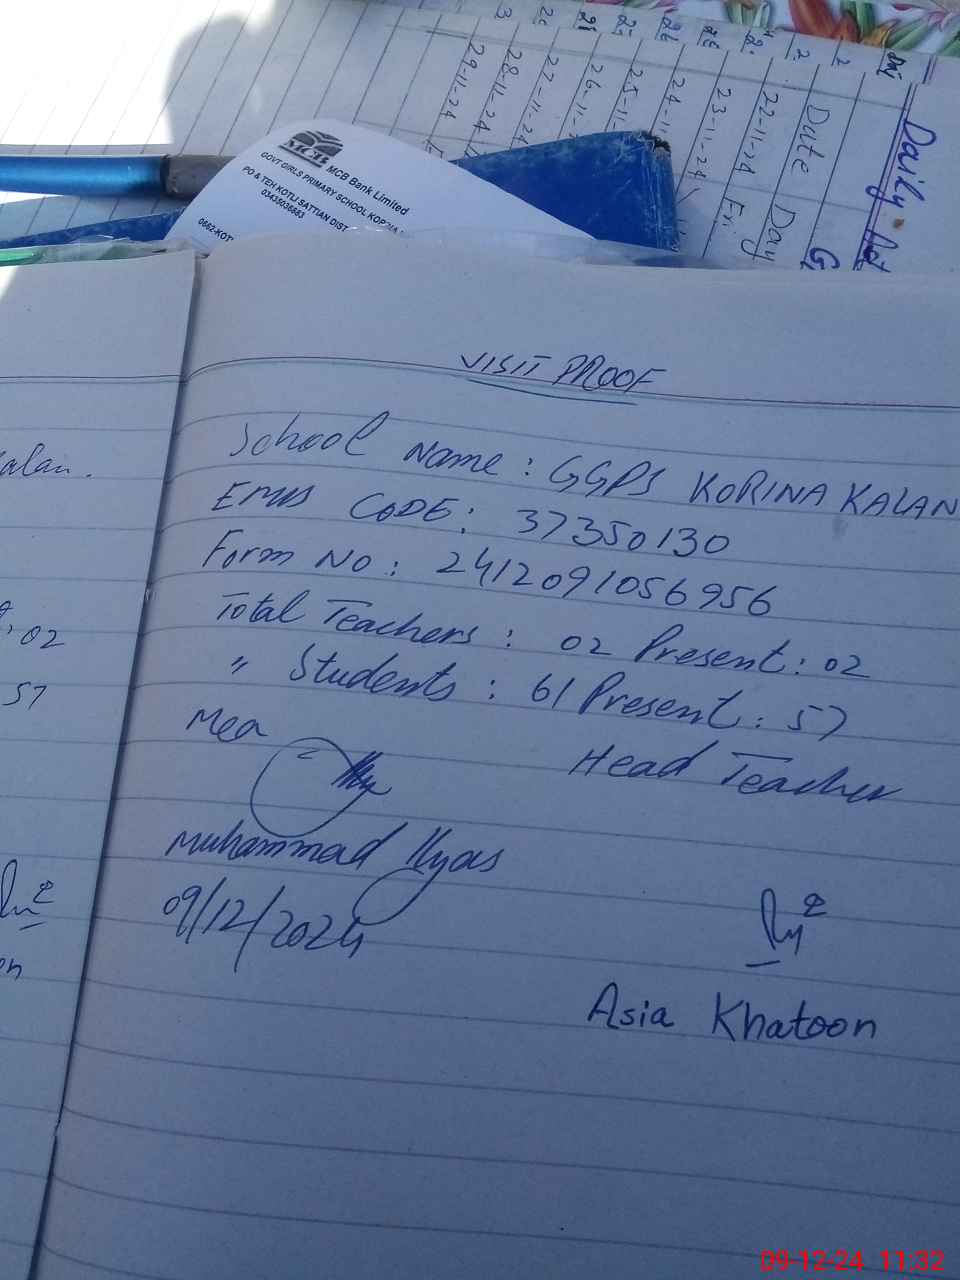 Daily
Date Day
22-11-24 Fri
23-11-24
24-11
25-11
26-11-2
27-11-24
28-11-24
29-11-24
MCB
MCB Bank Limited
GOVT GIRLS PRIMARY SCHOOL KORINA
PO & TEH KOTLI SATTIAN DIST
03435036863
0662-KOT
alan.
02
57
on
VISIT PROOF
School Name: GGPS KORINA KALAN
EMIS CODE: 37350130
Form No: 2412091056956
Total Teachers: 02 Present: 02
" Students: 61 Present: 57
Mea
Head Teacher
Muhammad Ilyas
09/12/2024
Asia Khatoon
09-12-24 11:32